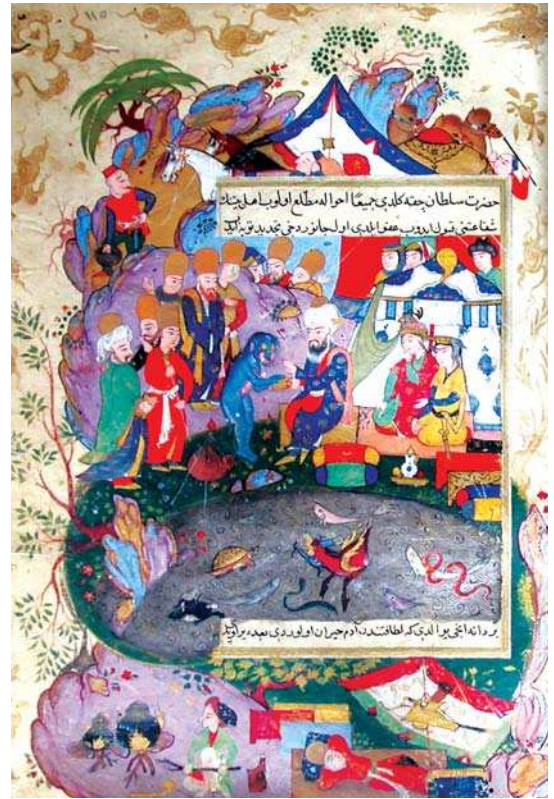 حضرت سلطان چقه كلدی جمیعًا احواله مطلع اولوب اهل بیتنك
شفاعتنی قبول ایدوب عفو ایلدی اول جانور دخی تجدید توبه
بر دانه اینجی بولدی كه لطافتندن آدم حیران اولوردی بعده